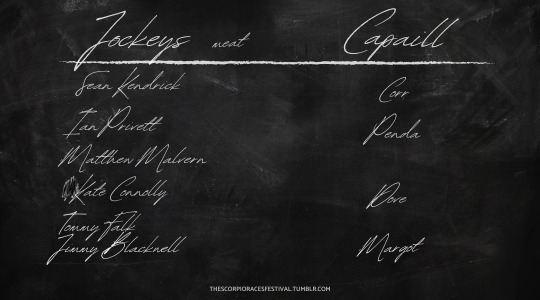 Jockeys meat Capaill
Sean Kendrick Corr
Ian Privett Penda
Matthew Malvern
Kate Connolly Dove
Tommy Falk
Jimmy Blacknell Margot
THESCORPIORACESFESTIVAL.TUMBLR.COM